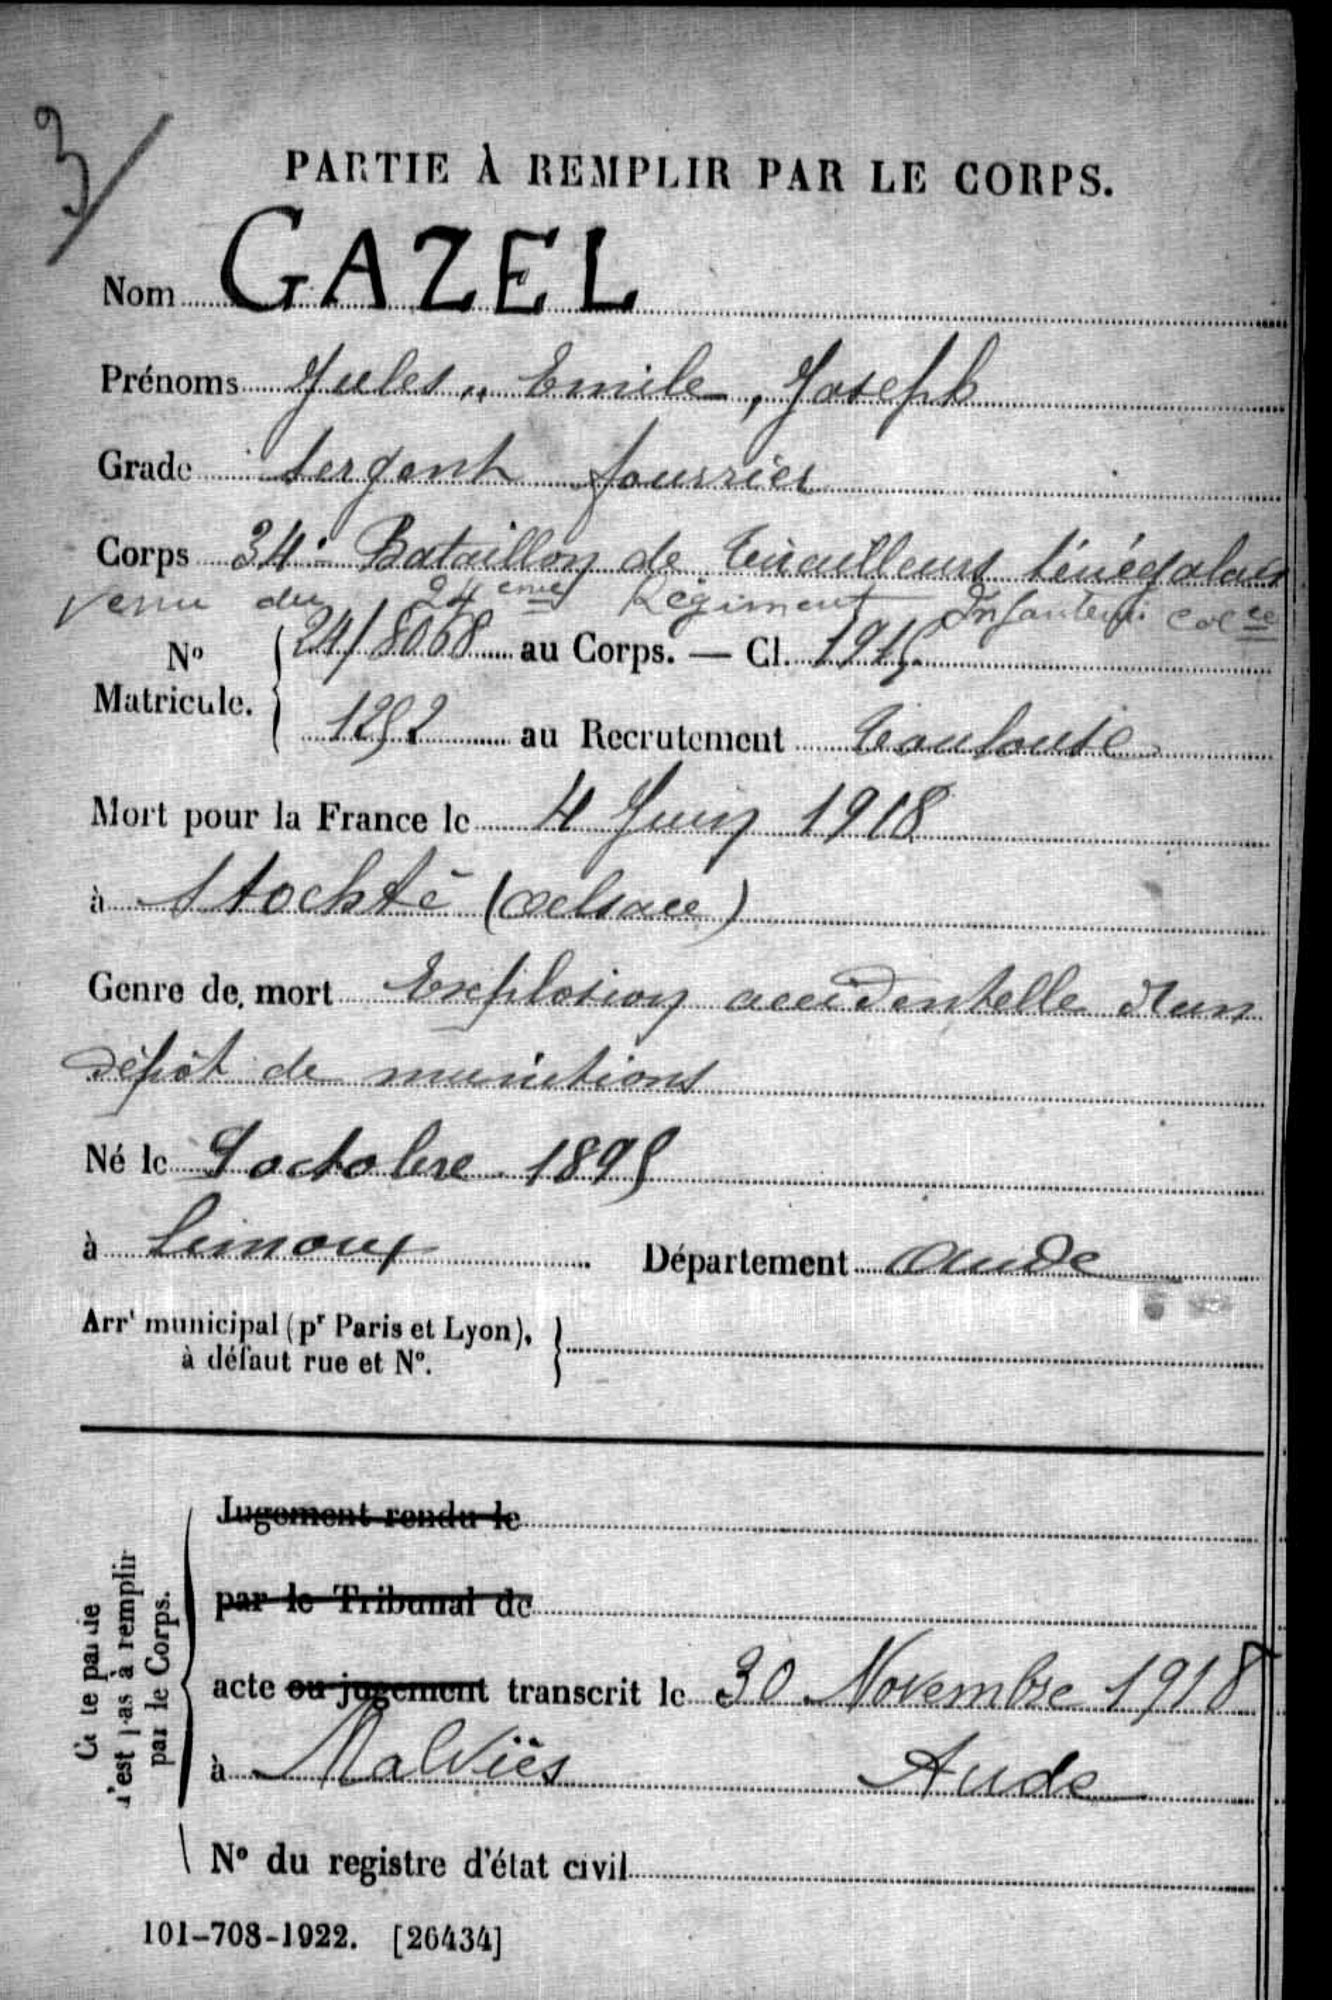 3/
PARTIE À REMPLIR PAR LE CORPS.
Nom GAZEL
Prénoms Jules, Emile, Joseph
Grade Sergent fourrier
Corps 34e Bataillon de Tirailleurs Sénégalais
Venu du 24ème Régiment Infanterie Colle
No Matricule. 24/8068 au Corps. — Cl. 1915
1292 au Recrutement Toulouse
Mort pour la France le 4 Juin 1918
à Stockté (Alsace)
Genre de mort Explosion accidentelle d'un
dépôt de munitions
Né le 9 octobre 1895
à Limoux Département Aude
Arrt municipal (pr Paris et Lyon),
à défaut rue et No.
Cette partie
n'est pas à remplir
par le Corps.
Jugement rendu le
par le Tribunal de
acte ou jugement transcrit le 30 Novembre 1918
à Malviès Aude
No du registre d'état civil
101-708-1922. [26434]